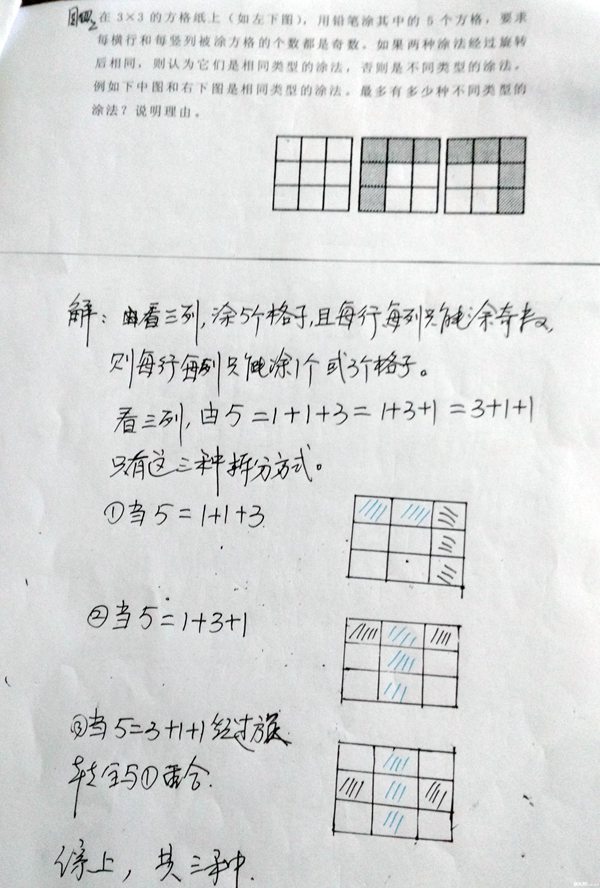 在 3×3 的方格纸上（如左下图），用铅笔涂其中的 5 个方格，要求
每横行和每竖列被涂方格的个数都是奇数。如果两种涂法经过旋转
后相同，则认为它们是相同类型的涂法，否则是不同类型的涂法。
例如下中图和右下图是相同类型的涂法。最多有多少种不同类型的
涂法？说明理由。
解：由看三列，涂5个格子，且每行每列只能涂奇数，
则每行每列只能涂1个或3个格子。
看三列，由5=1+1+3=1+3+1=3+1+1
只有这三种拆分方式。
①当5=1+1+3
②当5=1+3+1
③当5=3+1+1经过旋
转会与①重合.
综上，共三种.